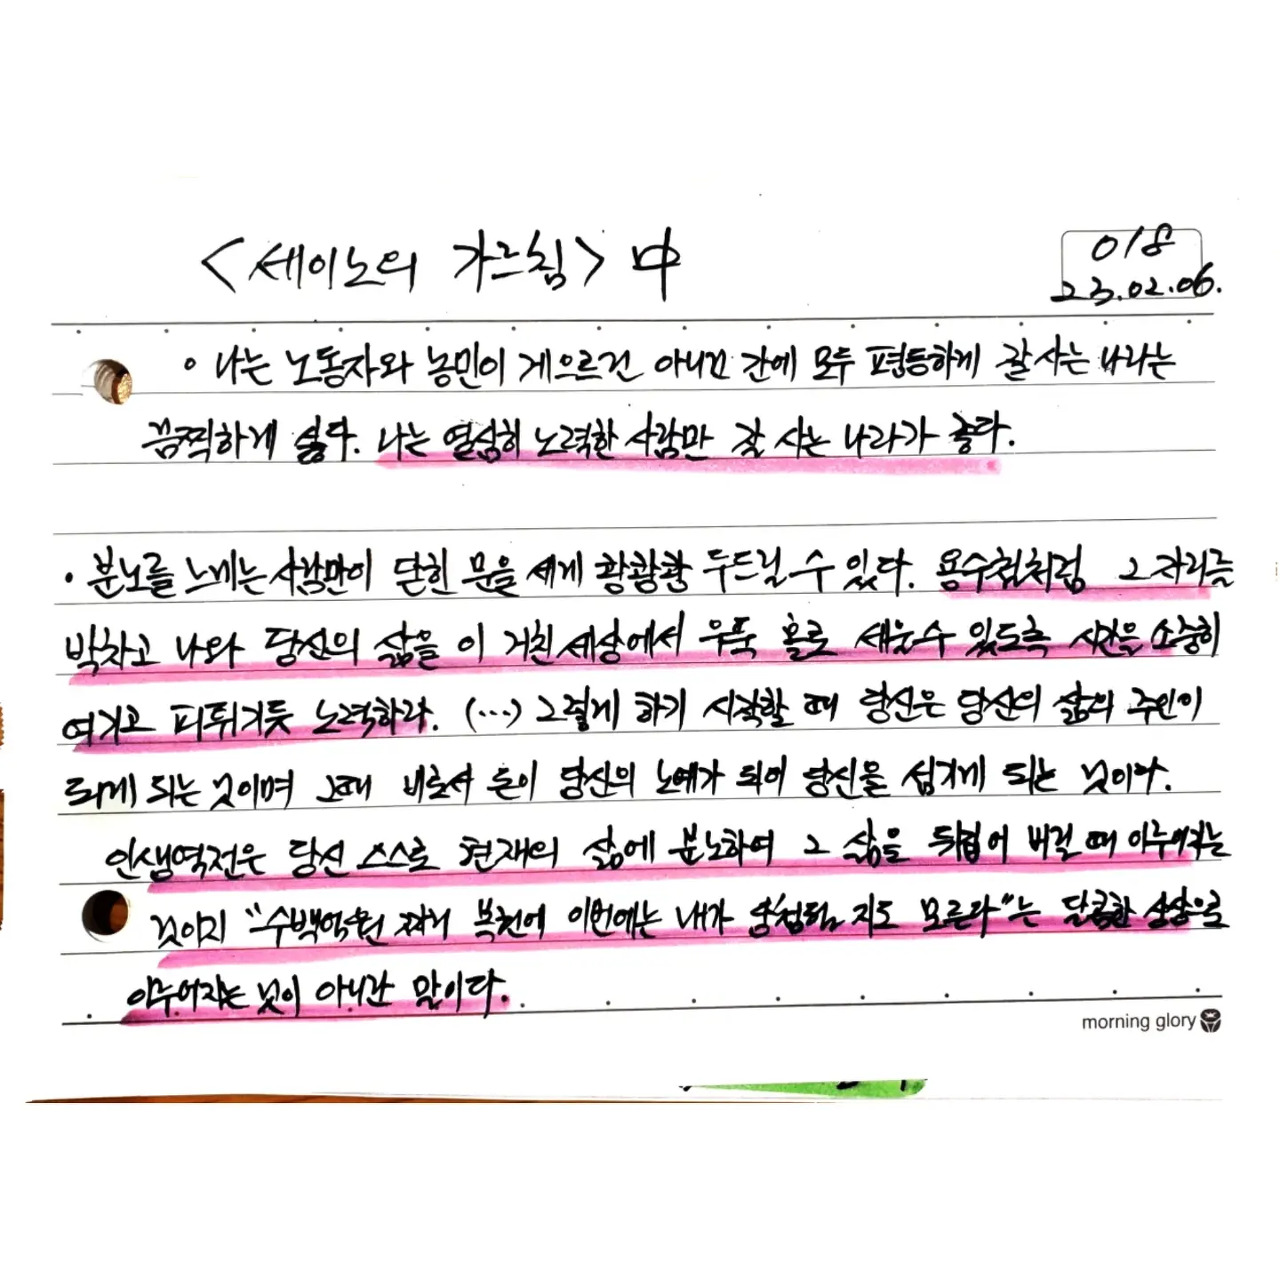 <세이노의 가르침> 中
018
23.02.06.
◦ 나는 노동자와 농민이 게으르건 아니건 간에 모두 평등하게 잘 사는 나라는
끔찍하게 싫다. 나는 열심히 노력한 사람만 잘 사는 나라가 좋다.
• 분노를 느끼는 사람만이 닫힌 문을 세게 쾅쾅쾅 두드릴 수 있다. 용수철처럼 그 자리를
박차고 나와 당신의 삶을 이 거친 세상에서 우뚝 홀로 세울 수 있도록 시간을 소중히
여기고 피튀기듯 노력하라. (…) 그렇게 하기 시작할 때 당신은 당신의 삶의 주인이
되게 되는 것이며 그때 비로서 돈이 당신의 노예가 되어 당신을 섬기게 되는 것이다.
인생역전은 당신 스스로 현재의 삶에 분노하여 그 삶을 뒤집어 버릴 때 이루어지는
것이지 "수백억원 짜리 복권에 이번에는 내가 당첨될 지도 모른다"는 달콤한 상상으로
이루어지는 것이 아니란 말이다.
morning glory